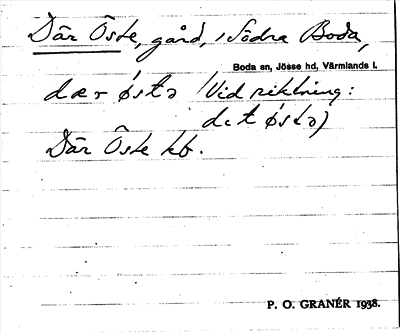 Där Öste, gård, i Södra Boda,
Boda sn, Jösse hd, Värmlands l.
dær østə (Vid riktning:
dit østə)
Där Öste kb.
P. O. GRANÉR 1938.